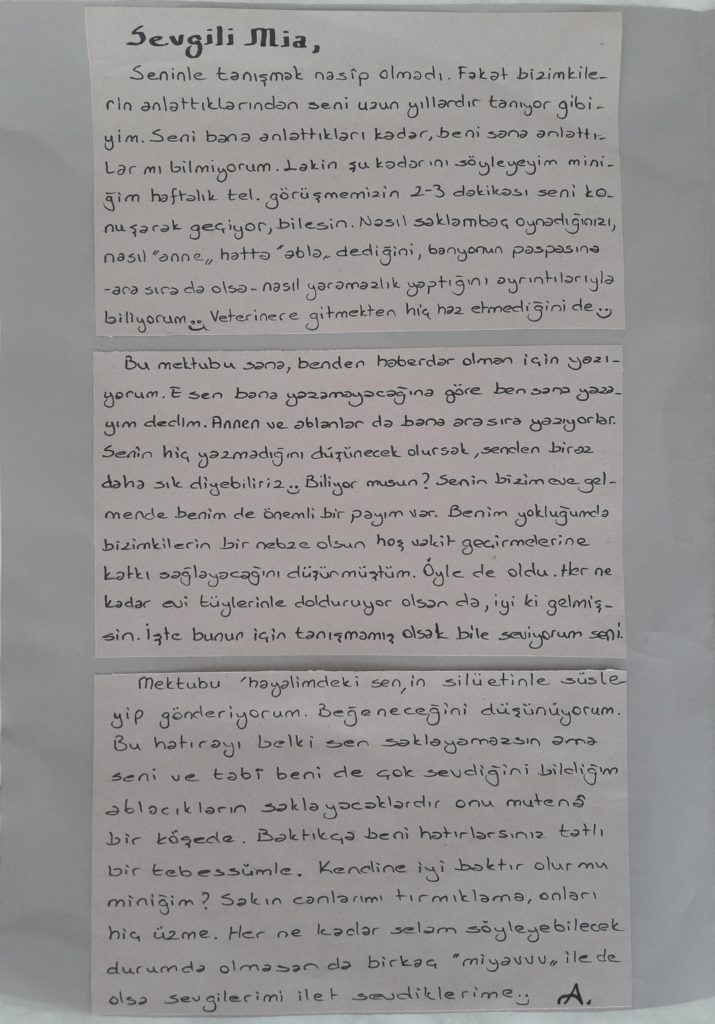 Sevgili Mia,
Seninle tanışmak nasip olmadı. Fakat bizimkile-
rin anlattıklarından seni uzun yıllardır tanıyor gibi-
yim. Seni bana anlattıkları kadar, beni sana anlattı-
lar mı bilmiyorum. Lakin şu kadarını söyleyeyim mini-
ğim haftalık tel. görüşmemizin 2-3 dakikası seni ko-
nuşarak geçiyor, bilesin. Nasıl saklambaç oynadığınızı,
nasıl "anne„ hatta "abla„ dediğini, banyonun paspasına
-ara sıra da olsa- nasıl yaramazlık yaptığını ayrıntılarıyla
biliyorum Veterinere gitmekten hiç haz etmediğini de
Bu mektubu sana, benden haberdar olman için yazı-
yorum. E sen bana yazamayacağına göre ben sana yaza-
yım dedim. Annen ve ablanlar da bana ara sıra yazıyorlar.
Senin hiç yazmadığını düşünecek olursak, senden biraz
daha sık diyebiliriz Biliyor musun? Senin bizim eve gel-
mende benim de önemli bir payım var. Benim yokluğumda
bizimkilerin bir nebze olsun hoş vakit geçirmelerine
katkı sağlayacağını düşünmüştüm. Öyle de oldu. Her ne
kadar evi tüylerinle dolduruyor olsan da, iyi ki gelmiş-
sin. İşte bunun için tanışmamış olsak bile seviyorum seni.
Mektubu 'hayalimdeki sen‚in silüetinle süsle
yip gönderiyorum. Beğeneceğini düşünüyorum.
Bu hatırayı belki sen saklayamazsın ama
seni ve tabî beni de çok sevdiğini bildiğim
ablacıkların saklayacaklardır onu mutena
bir köşede. Baktıkça beni hatırlarsınız tatlı
bir tebessümle. Kendine iyi baktır olur mu
miniğim? Sakın canlarımı tırmıklama, onları
hiç üzme. Her ne kadar selam söyleyebilecek
durumda olmasan da birkaç "miyavvv„ ile de
olsa sevgilerimi ilet sevdiklerime.. A.